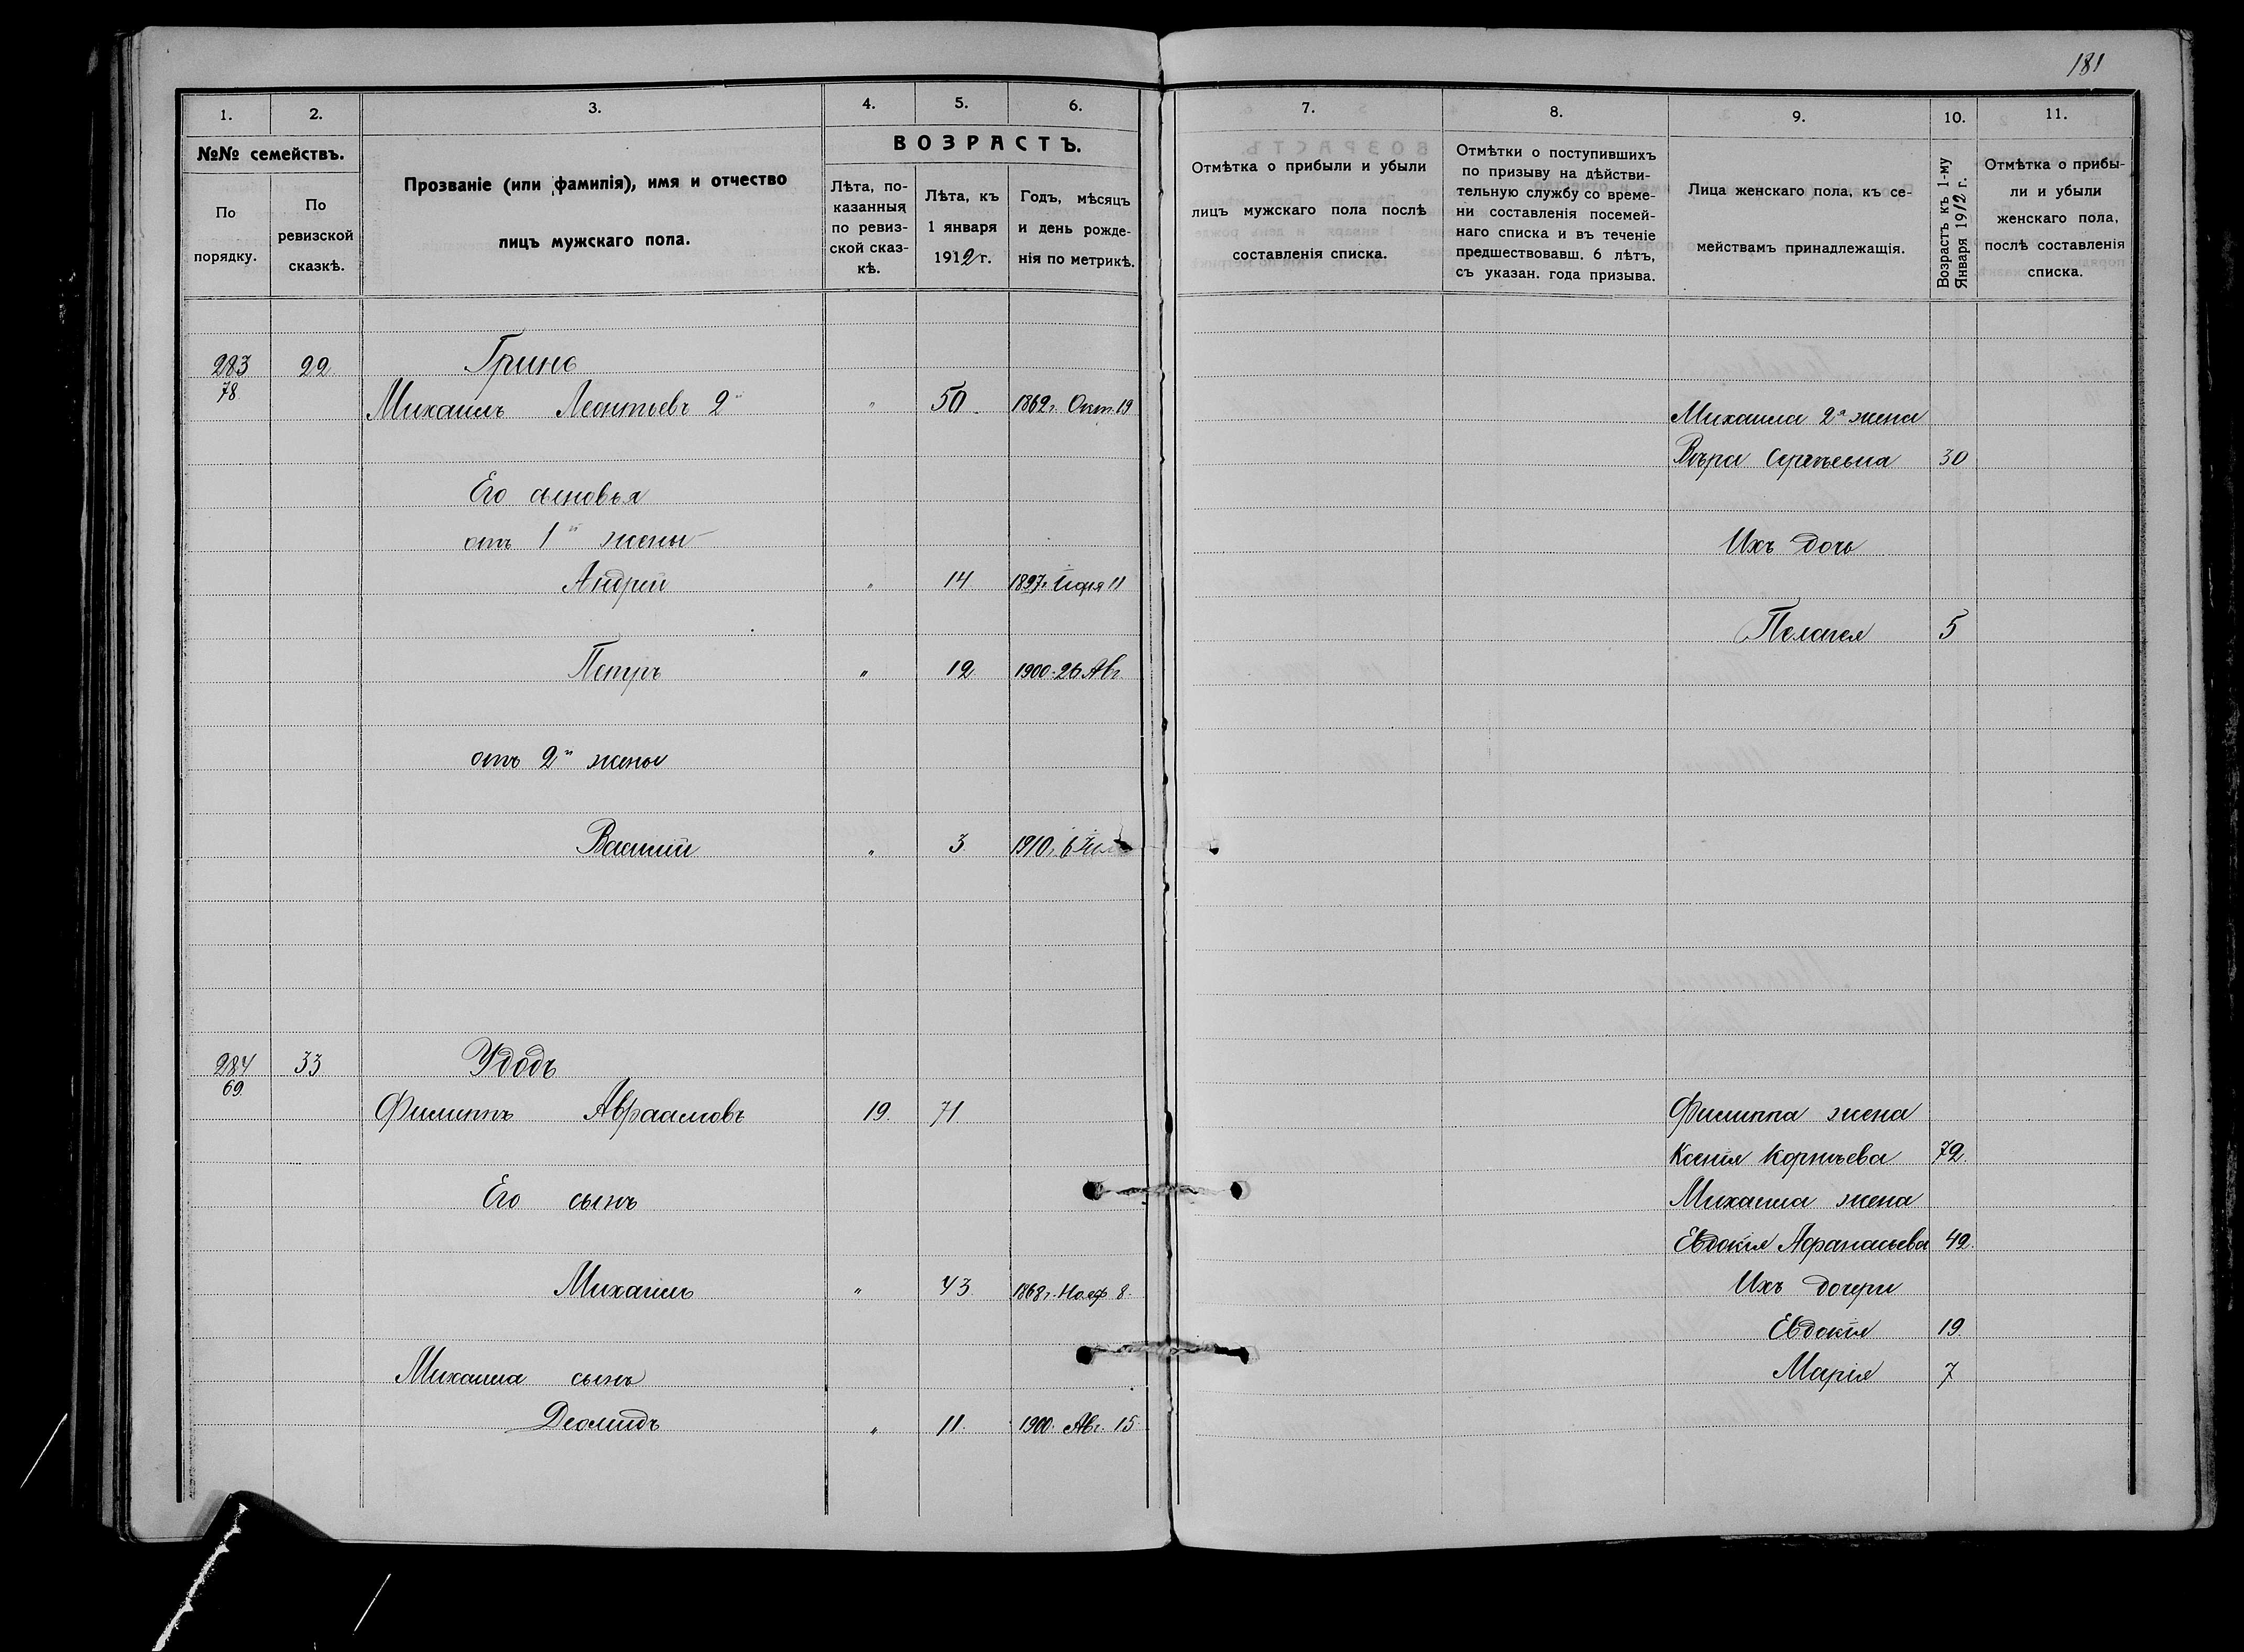 181
1.
2.
3.
4.
5.
6.
7.
8.
9.
10.
11.
№№ семействъ.
По порядку.
По ревизской сказкѣ.
Прозваніе (или фамилія), имя и отчество
лицъ мужского пола.
ВОЗРАСТЪ.
Лѣта, по-
казанныя
по ревиз-
ской сказ-
кѣ.
Лѣта, къ
1 января
1912 г.
Годъ, мѣсяцъ
и день рожде-
нія по метрикѣ.
Отмѣтка о прибыли и убыли
лицъ мужского пола послѣ
составленія списка.
Отмѣтки о поступившихъ
по призыву на дѣйстви-
тельную службу со време-
ни составленія посемей-
наго списка и въ теченіе
предшествовавш. 6 лѣтъ,
съ указан. года призыва.
Лица женскаго пола, къ се-
мействамъ принадлежащія.
Возрастъ къ 1-му
Января 1912 г.
Отмѣтка о прибы-
ли и убыли
женскаго пола,
послѣ составленія
списка.
283 22 Гринь
78
Михаилъ Леонтьевъ 2й " 50 1862 г. Окт. 19
Михаила 2я жена
Вѣра Сергѣевна 30
Его сыновья
отъ 1й жены
Ихъ дочь
Андрей " 14 1897 г. 11
Пелагея 5
Петръ " 12 1900. 26 Авг.
отъ 2й жены
Василій " 3 1910 г. 6
284 33 Удодъ
69
Филиппъ Авраамовъ 19. 71.
Филиппа жена
Ксенія Корнѣева 72.
Его сынъ
Михаила жена
Евдокія Афанасьева 42.
Михаилъ " 43 1868 г. Нояб 8.
Ихъ дочери
Евдокія 19.
Михаила сынъ
Марія 7
Деомидъ " 11. 1900. Авг. 15